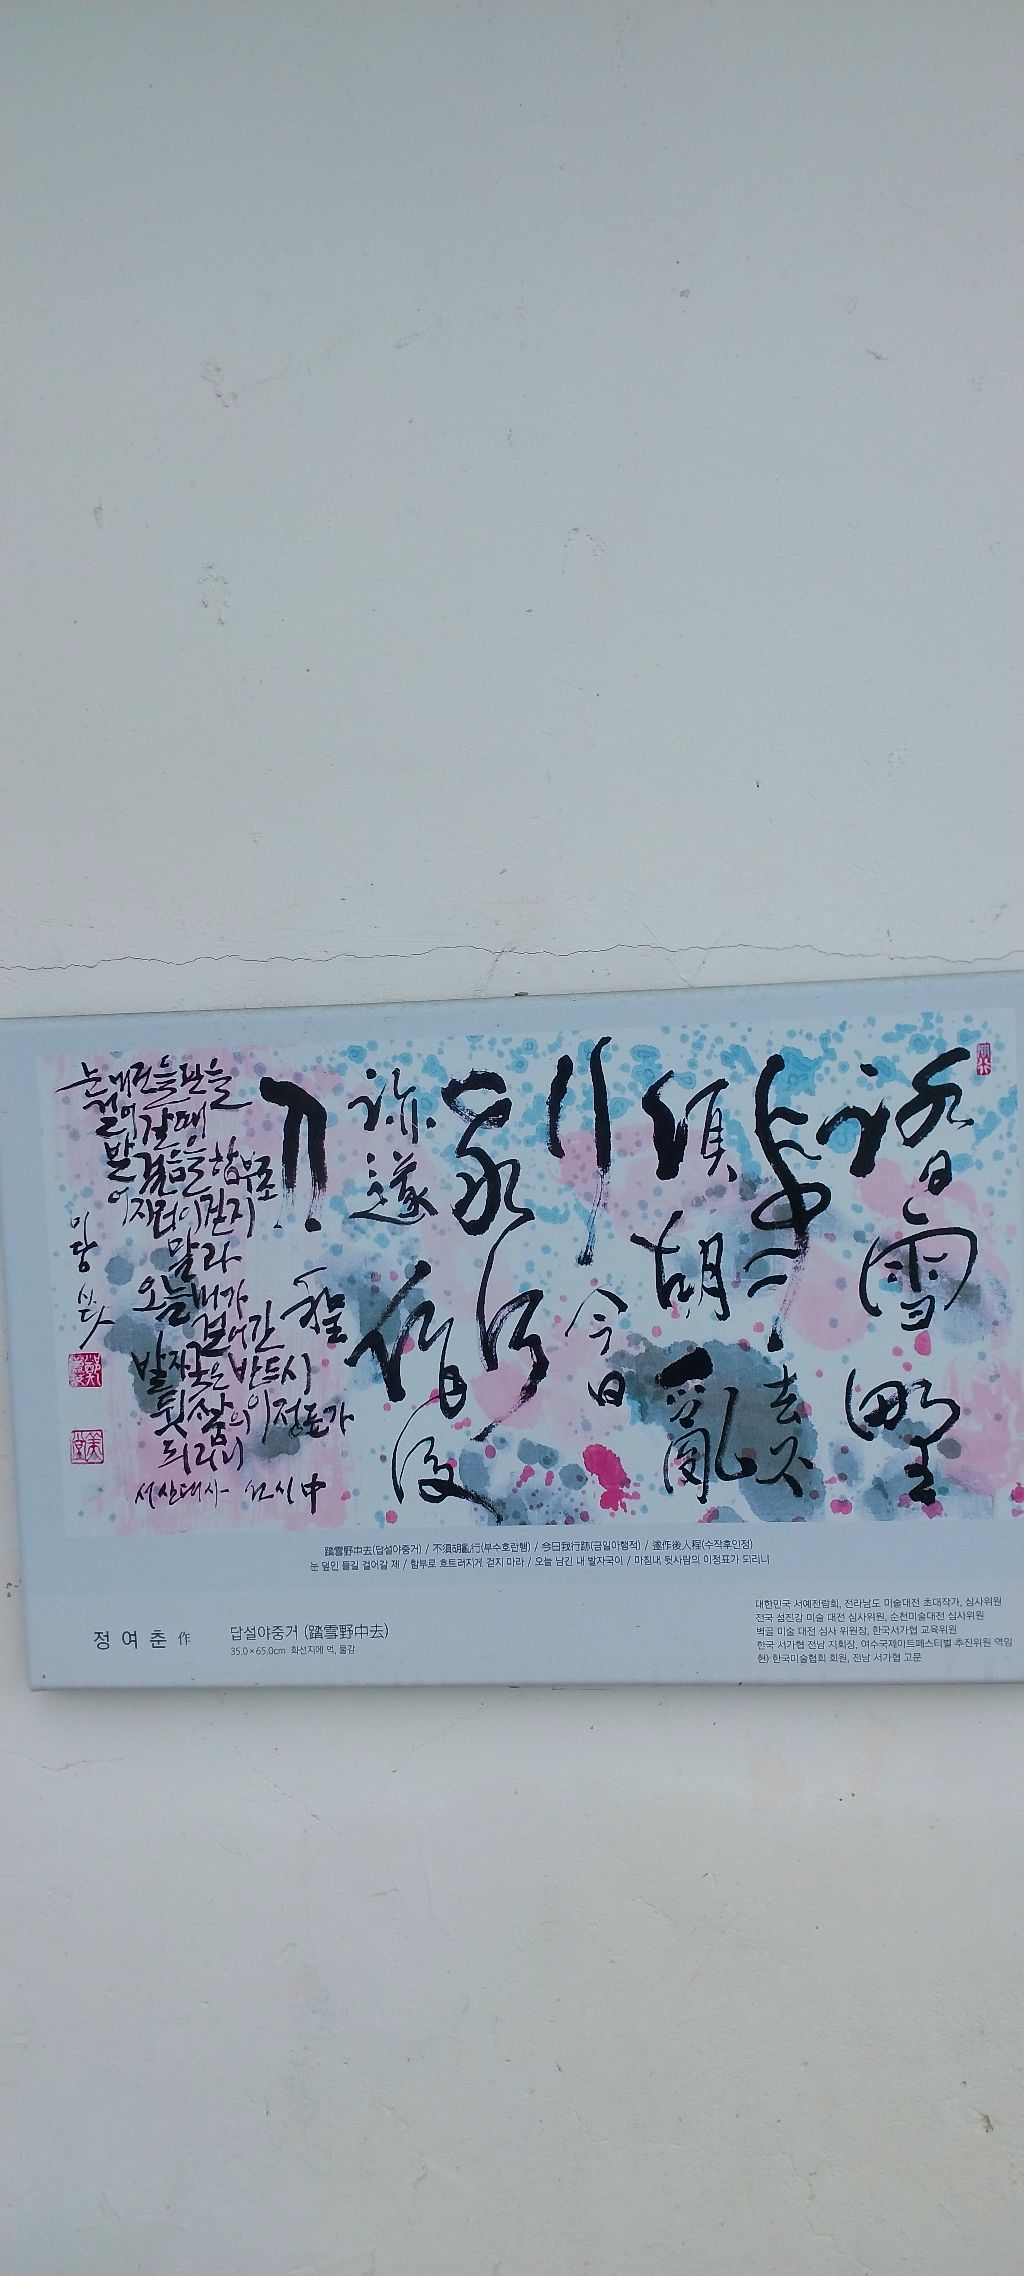 踏雪野
中去不
須胡亂
行今日
我行
跡遂作後
人程
눈 내린 들판을
걸어갈 때
발걸음을 함부로
어지러이 걷지
말라
오늘 내가
걸어간
발자국은 반드시
뒷사람의 이정표가
되리니
서산대사 선시 中
미당 쓰다
踏雪野中去(답설야중거) / 不須胡亂行(부수호란행) / 今日我行跡(금일아행적) / 遂作後人程(수작후인정)
눈 덮인 들길 걸어갈 제 / 함부로 흐트러지게 걷지 마라 / 오늘 남긴 내 발자국이 / 마침내 뒷사람의 이정표가 되리니
정여춘 作
답설야중거 (踏雪野中去)
35.0×65.0cm 화선지에 먹, 물감
대한민국 서예전람회, 전라남도 미술대전 초대작가, 심사위원
전국 섬진강 미술 대전 심사위원, 순천미술대전 심사위원
벽골 미술 대전 심사 위원장, 한국서가협 교육위원
한국 서가협 전남 지회장, 여수국제아트페스티벌 추진위원 역임
현) 한국미술협회 회원, 전남 서가협 고문